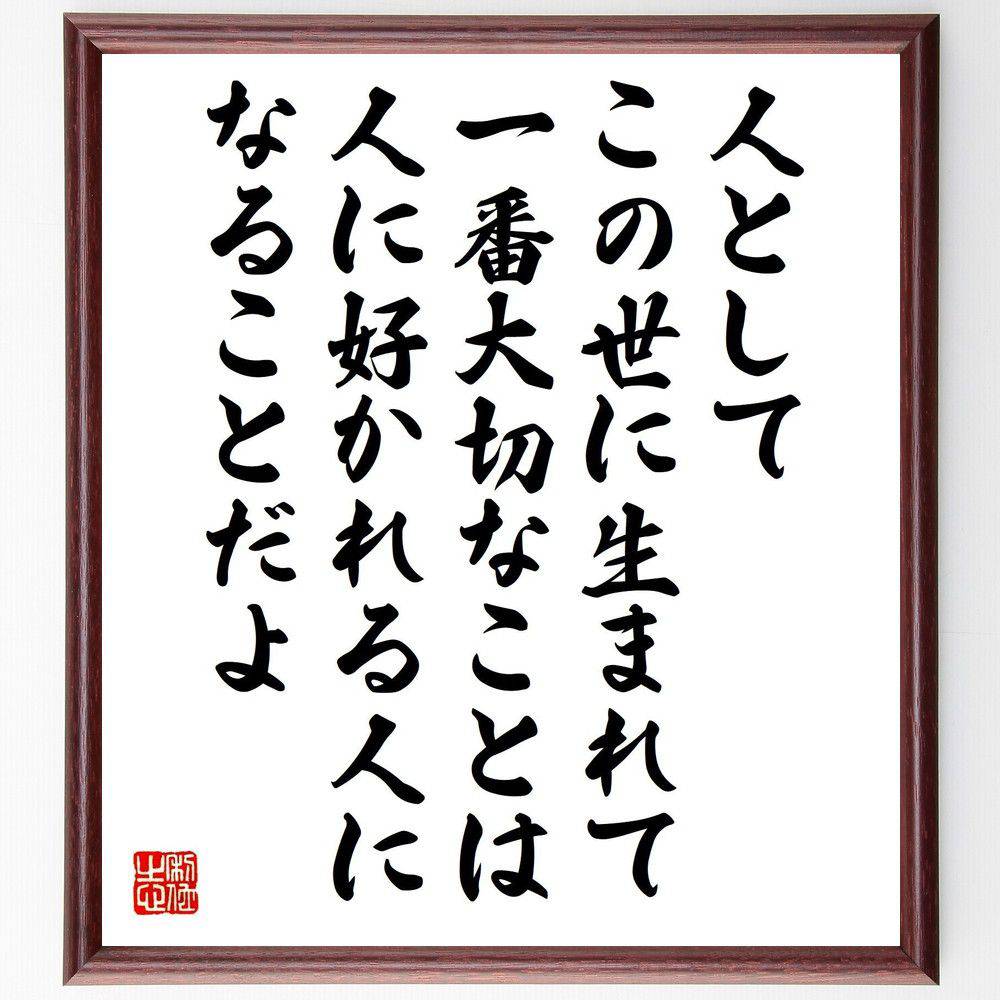 人として
この世に生まれて
一番大切なことは
人に好かれる人に
なることだよ